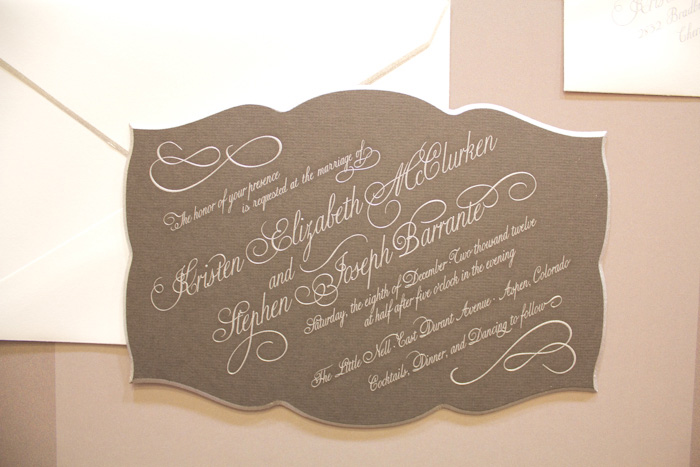 The honor of your presence
is requested at the marriage of
Kristen Elizabeth McClurken
and
Stephen Joseph Barrante
Saturday, the eighth of December Two thousand twelve
at half after five o'clock in the evening
The Little Nell · East Durant Avenue · Aspen, Colorado
Cocktails, Dinner, and Dancing to follow